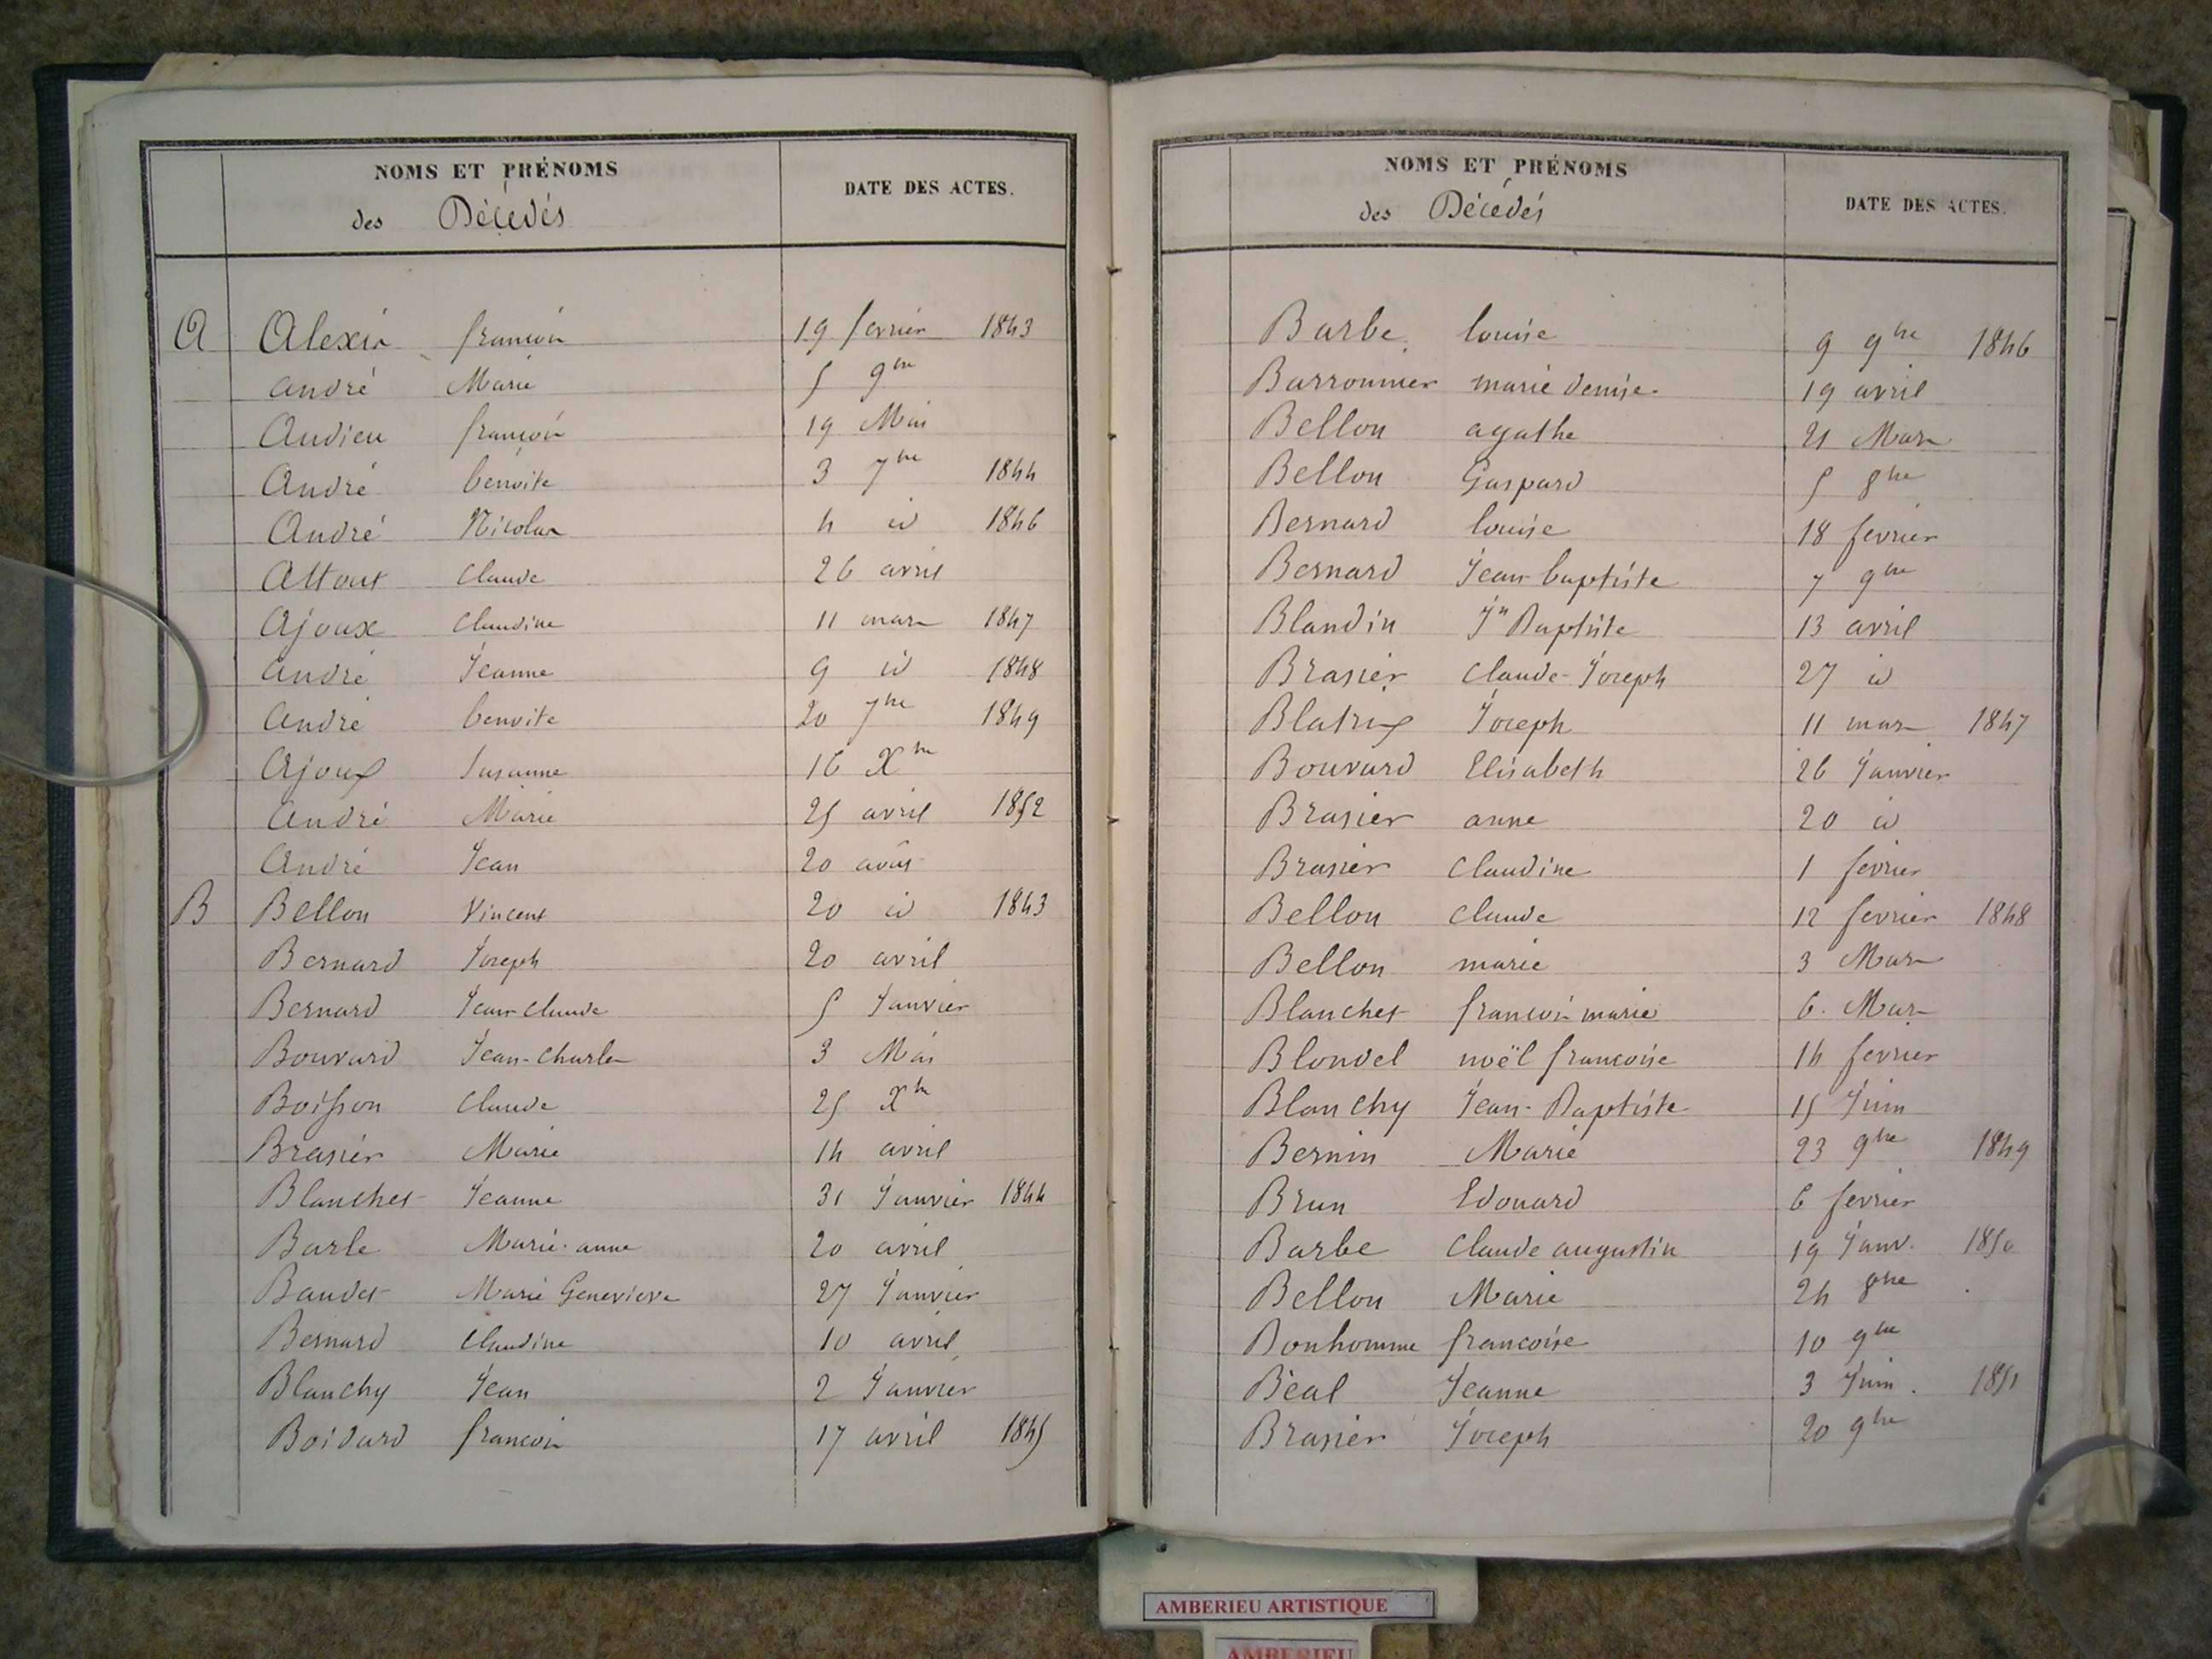 NOMS ET PRÉNOMS
des Décédés
DATE DES ACTES.
A Alexis françois 19 fevrier 1843
André Marie 5 9bre
Audieu françois 19 Mai
André benoite 3 7bre 1844
André Nicolas 4 id 1846
Attout Claude 26 avril
Ajoux Claudine 11 mars 1847
André Jeanne 9 id 1848
André benoite 20 7bre 1849
Ajoux Susanne 16 Xbre
André Marie 25 avril 1852
André Jean 20 août
B Bellon Vincent 20 id 1843
Bernard Joseph 20 avril
Bernard Jean Claude 5 Janvier
Bouvard Jean-Charles 3 Mai
Boisson Claude 25 Xbre
Brasier Marie 14 avril
Blanchet Jeanne 31 Janvier 1844
Barle Marie-anne 20 avril
Baudet Marie Genevieve 27 Janvier
Bernard Claudine 10 avril
Blanchy Jean 2 Janvier
Boidard françois 17 avril 1845
NOMS ET PRÉNOMS
des Décédés
DATE DES ACTES.
Barbe louise 9 9bre 1846
Barronnier marie denise 19 avril
Bellon agathe 21 Mars
Bellon Gaspard 5 8bre
Bernard louise 18 fevrier
Bernard Jean baptiste 7 9bre
Blandin Jn Baptiste 13 avril
Brasier Claude-Joseph 27 id
Blatrix Joseph 11 mars 1847
Bouvard Elisabeth 26 Janvier
Brasier anne 20 id
Brasier Claudine 1 fevrier
Bellon Claude 12 fevrier 1848
Bellon marie 3 Mars
Blanchet françois marie 6. Mars
Blondel noël francoise 14 fevrier
Blanchy Jean-Baptiste 15 Juin
Bernin Marie 23 9bre 1849
Brun Edouard 6 fevrier
Barbe Claude augustin 19 Janv. 1850
Bellon Marie 24 8bre
Bonhomme francoise 10 9bre
Béal Jeanne 3 Juin. 1851
Brasier Joseph 20 9bre
AMBERIEU ARTISTIQUE
AMBERIEU